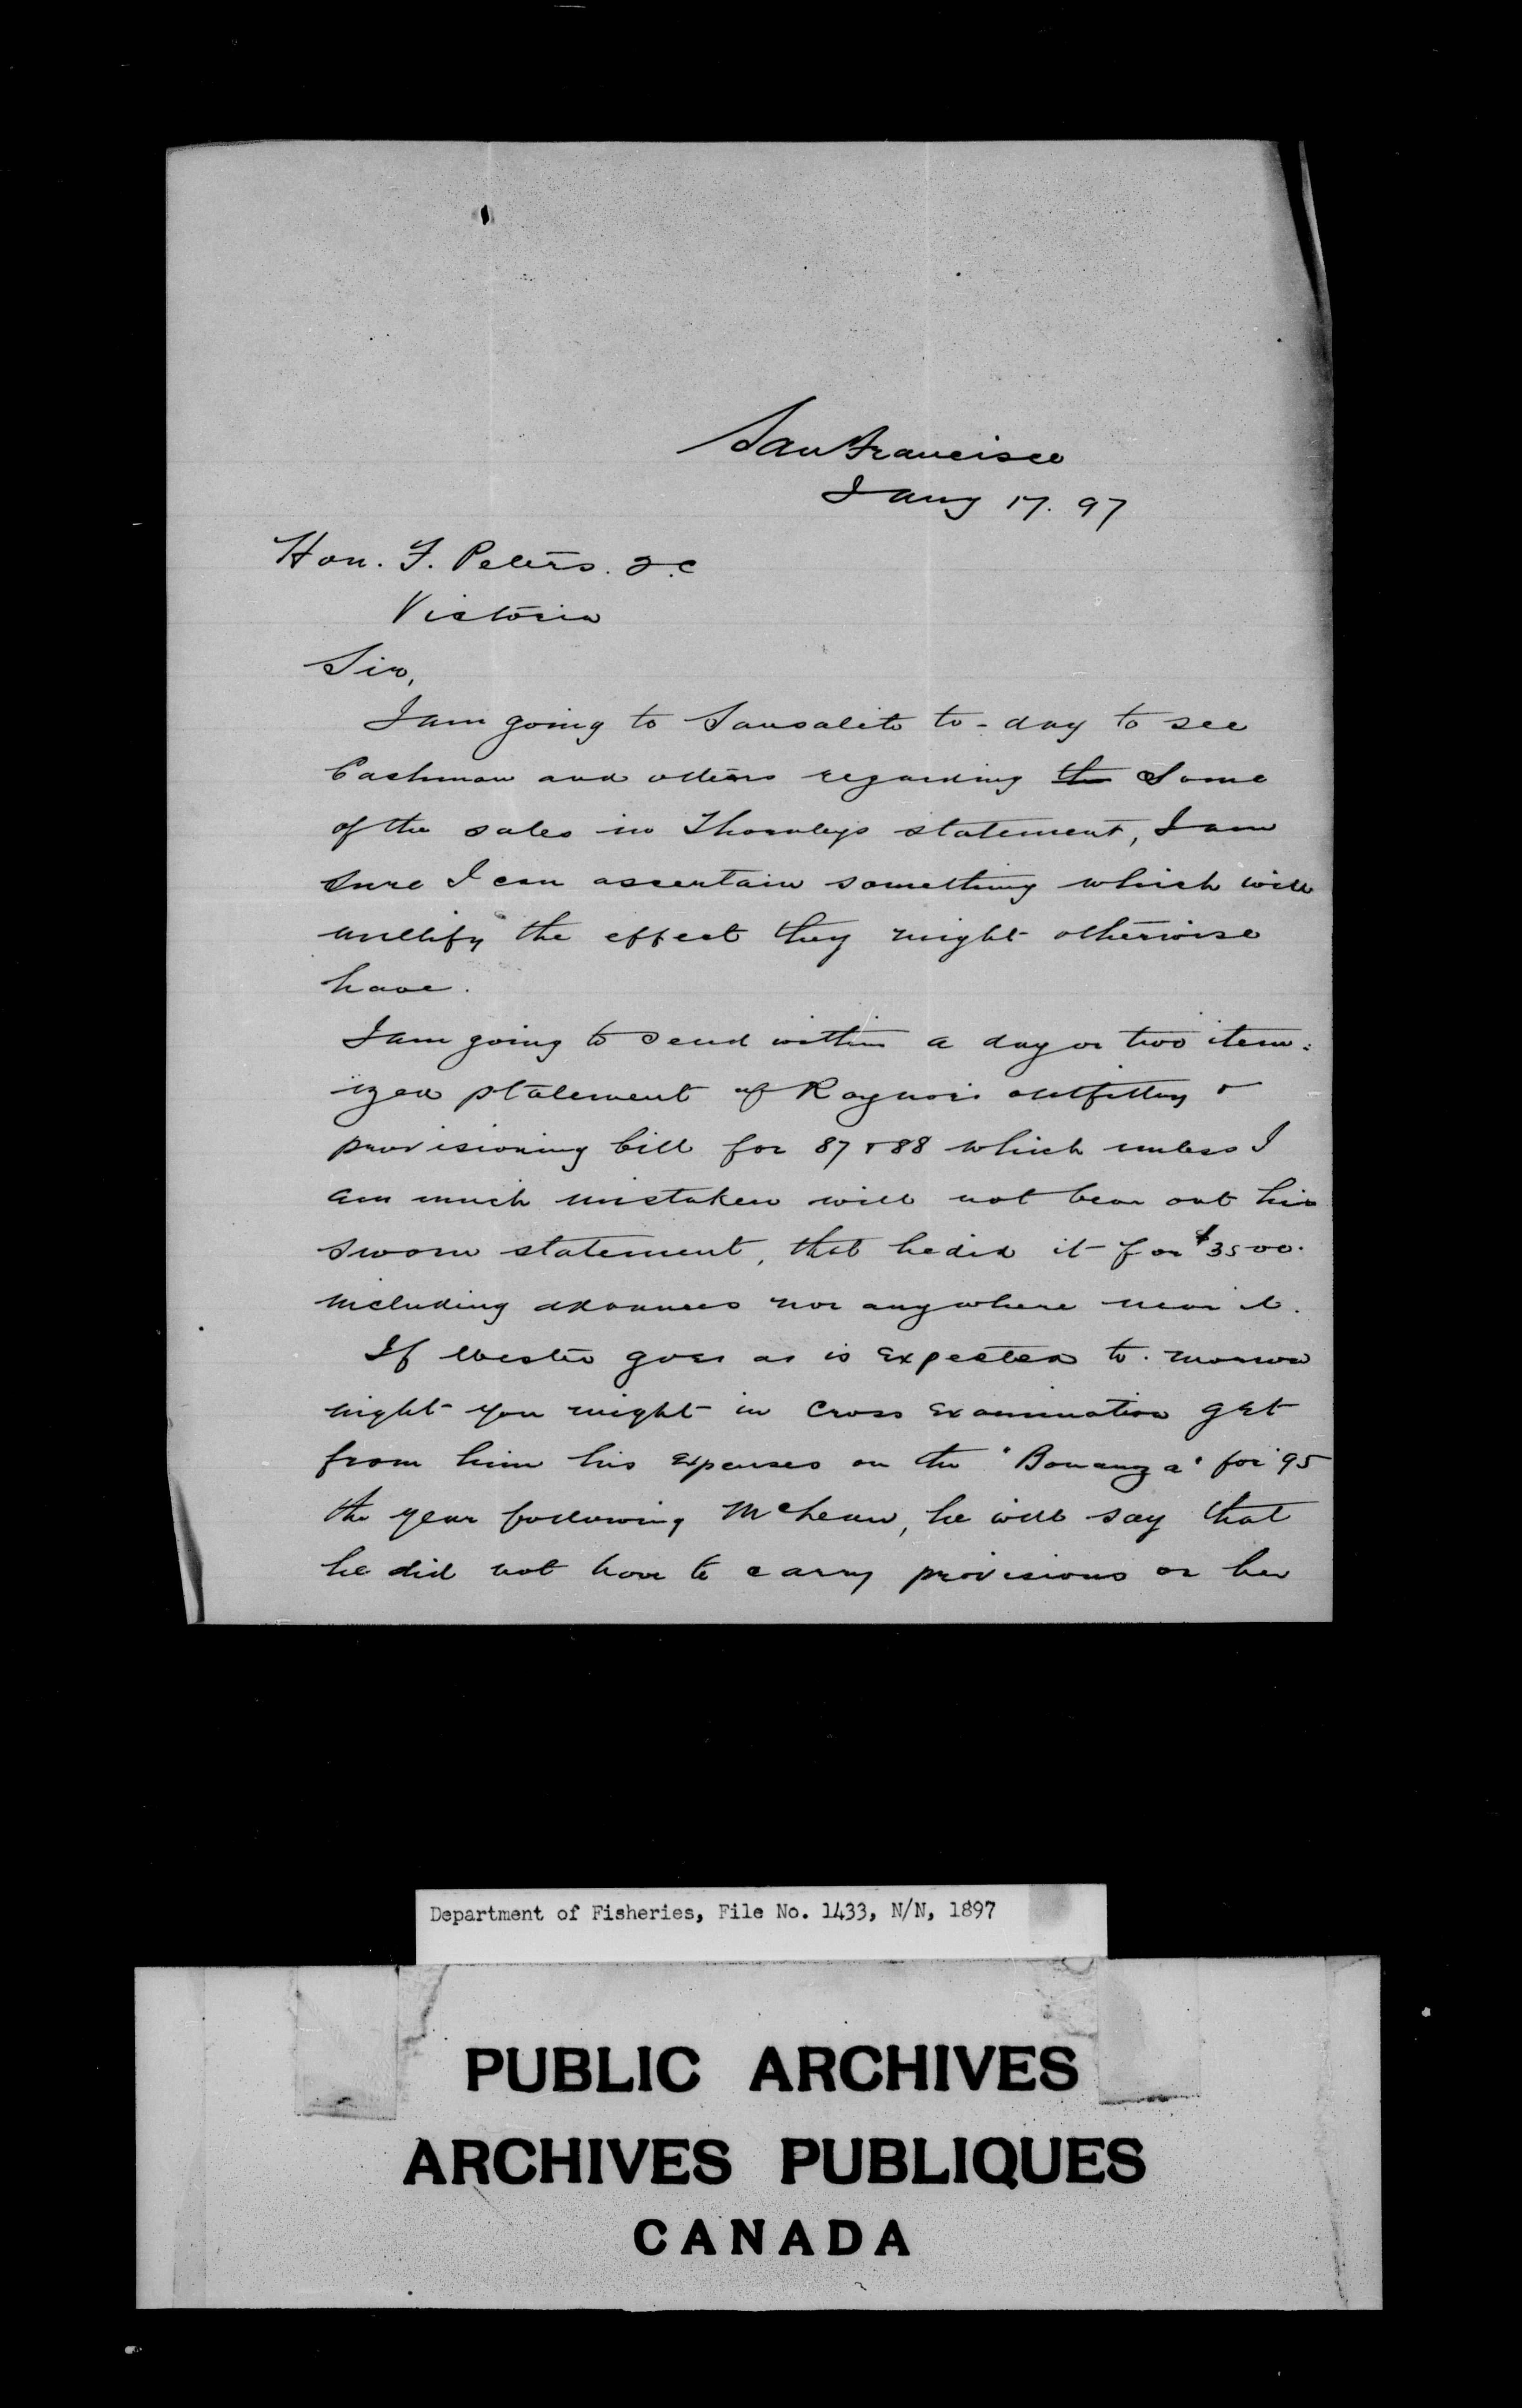 San Francisco
Jany 17. 97
Hon. F. Peters. Q.C
Victoria
Sir,
I am going to Sausalito to-day to see
Cashman and others regarding the Some
of the sales in Thornleys statement, I am
sure I can ascertain something which will
nullify the effect they might otherwise
have.
I am going to send within a day or two item:
ized statement of Raynors outfitting &
provisioning bill for 87 & 88 which unless I
am much mistaken will not bear out his
sworn statement, that he did it for $3500.
including advances nor anywhere near it.
If goes as is expected to.morrow
night you might in Cross Examination get
from him his Expenses on the "Bonanza" for 95
the year following McLean, he will say that
he did not have to carry provisions or her
Department of Fisheries, File No. 1433, N/N, 1897
PUBLIC ARCHIVES
ARCHIVES PUBLIQUES
CANADA